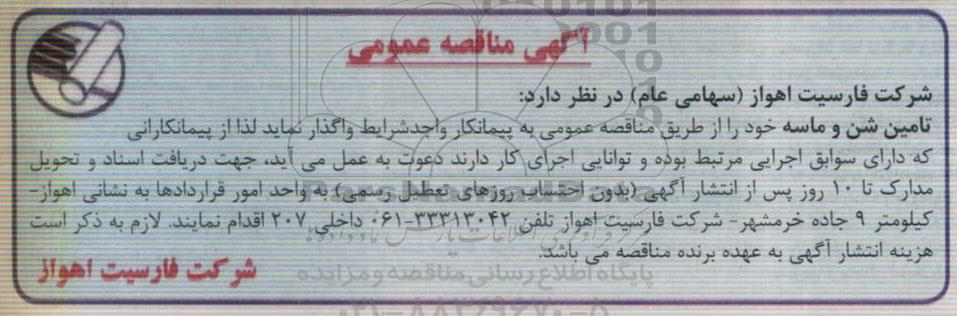 آگهی مناقصه عمومی
شرکت فارسیت اهواز (سهامی عام) در نظر دارد:
تامین شن و ماسه خود را از طریق مناقصه عمومی به پیمانکار واجدشرایط واگذار نماید لذا از پیمانکارانی
که دارای سوابق اجرایی مرتبط بوده و توانایی اجرای کار دارند دعوت به عمل می آید، جهت دریافت اسناد و تحویل
مدارک تا ۱۰ روز پس از انتشار آگهی (بدون احتساب روزهای تعطیل رسمی) به واحد امور قراردادها به نشانی اهواز-
کیلومتر ۹ جاده خرمشهر- شرکت فارسیت اهواز تلفن ۳۳۳۱۳۰۴۲-۰۶۱ داخلی ۲۰۷ اقدام نمایند. لازم به ذکر است
هزینه انتشار آگهی به عهده برنده مناقصه می باشد.
شرکت فارسیت اهواز
پایگاه اطلاع رسانی مناقصه و مزایده
۰۲۱-۸۸۳۴۹۶۷۰-۵